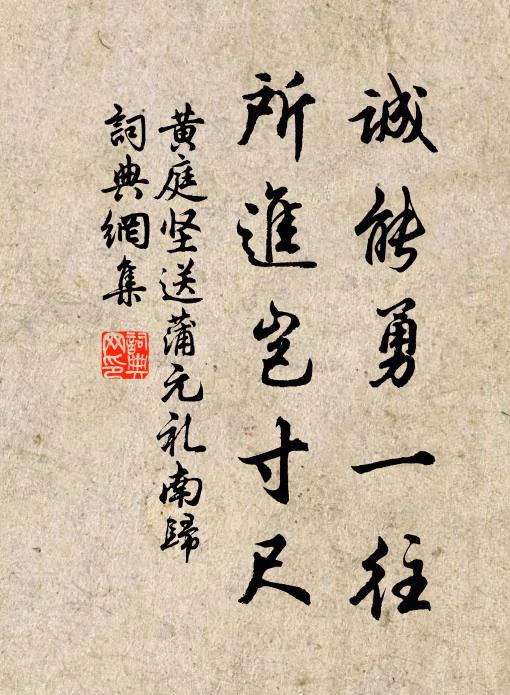 誠能勇一往
所進豈寸尺
黄庭坚送蒲元礼南歸
詞典網集
詞典
网印